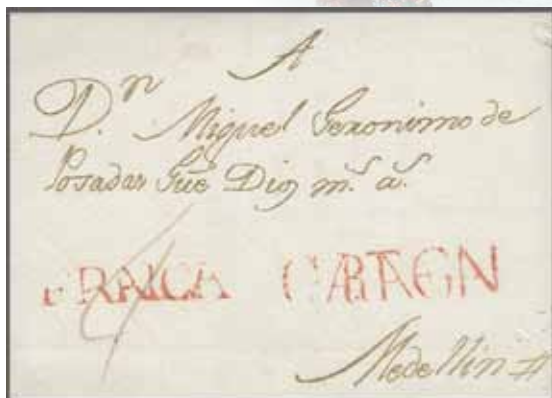 A
D.n Miguel Geronimo de
Posadas Gûe Dios m.s a.s
4
FRANCA CARTAGN
Medellin